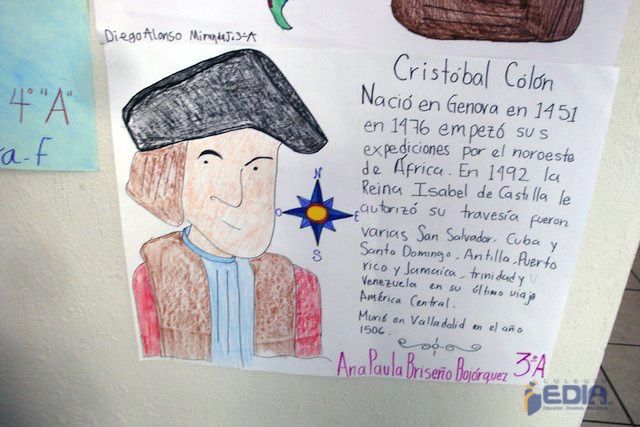 Diego Alonso Miranda J. 3ºA
4º "A"
ra-f
Cristóbal Colón
Nació en Genova en 1451
en 1476 empezó sus
expediciones por el noroeste
de África. En 1492 la
Reina Isabel de Castilla le
autorizó su travesía fueron
varias San Salvador, Cuba y
Santo Domingo, Antilla, Puerto
rico y Jamaica, trinidad y
Venezuela en su último viaje
América Central.
Murió en Valladolid en el año
1506.
N
O
E
S
Ana Paula Briseño Bojórquez 3ºA
COLEGIO
EDIA